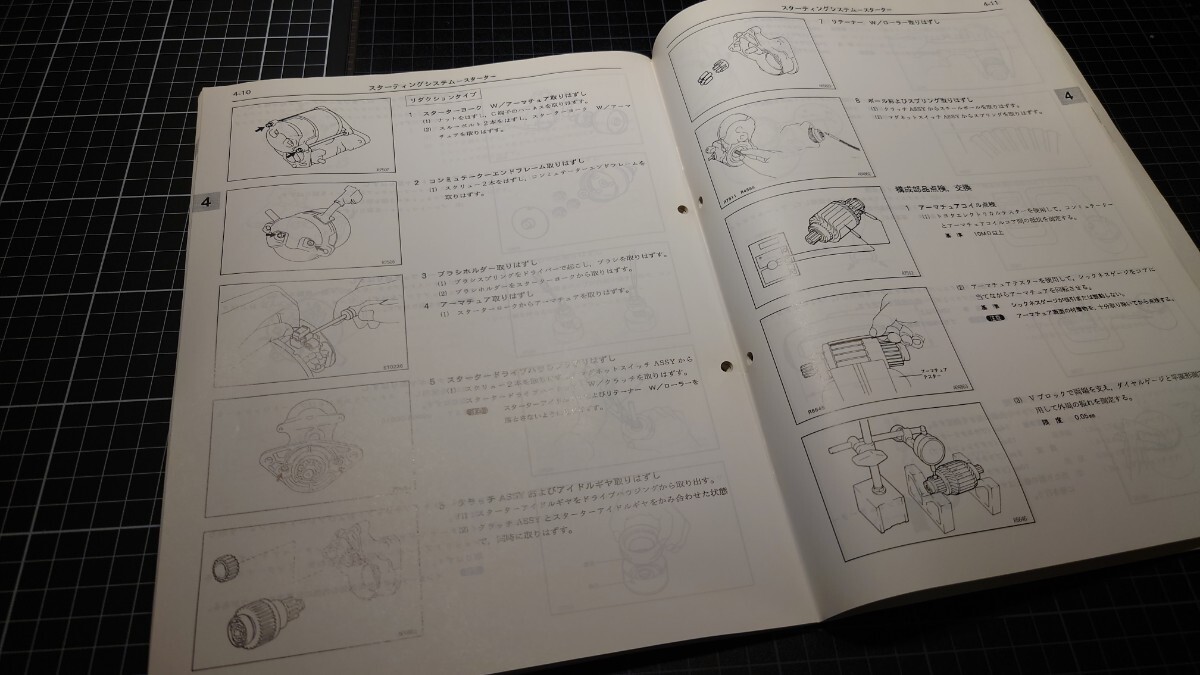 4-10
スターティングシステムースターター
リダクションタイプ
1 スターターヨーク W/アーマチュア取りはずし
(1) ナットをはずし、C端子のハーネスを取りはずす。
(2) スルーボルト2本をはずし、スターターヨーク W/アーマ
チュアを取りはずす。
2 コンミュテーターエンドフレーム取りはずし
(1) スクリュー2本をはずし、コンミュテーターエンドフレームを
取りはずす。
3 ブラシホルダー取りはずし
(1) ブラシスプリングをドライバーで起こし、ブラシを取りはずす。
(2) ブラシホルダーをスターターヨークから取りはずす。
4 アーマチュア取りはずし
(1) スターターヨークからアーマチュアを取りはずす。
4
5 スタータードライブハウジング取りはずし
(1) スクリュー2本を
ネットスイッチ ASSYから
W/クラッチを取りはずす。
スターターアイドル
よびリテーナー W/ローラーを
落とさないように
クラッチ ASSYおよびアイドルギヤ取りはずし
(1) スターターアイドルギヤをドライブハウジングから取り出す。
(2) クラッチASSYとスターターアイドルギヤをかみ合わせた状態
で、同時に取りはずす。
スターティングシステムースターター
4-11
7 リテーナー W/ローラー取りはずし
8 ボールおよびスプリング取りはずし
(1) クラッチ ASSYからスチールボールを取りはずす。
(2) マグネットスイッチ ASSYからスプリングを取りはずす。
4
構成部品点検、交換
1 アーマチュアコイル点検
(1) トヨタエレクトリカルテスターを使用して、コンミュテーター
とアーマチュアコイルコア間の抵抗を測定する。
基準 10MΩ以上
(2) アーマチュアテスターを使用して、シックネスゲージをコアに
当てながらアーマチュアを回転させる。
基準 シックネスゲージが吸引または振動しない。
注意 アーマチュア表面の付着物を、十分取り除いてから点検する。
アーマチュア
テスター
(3) Vブロックで両端を支え、ダイヤルゲージと平面形測定
用して外周の振れを測定する。
限度 0.05mm